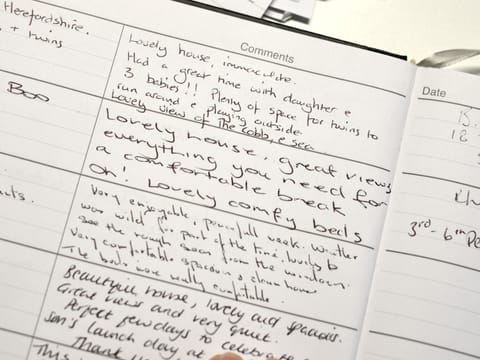 Herefordshire.
+ twins
Boo
Comments
Lovely house, immaculate.
Had a great time with daughter &
3 babies!! Plenty of space for twins to
run around & playing outside
Lovely view of The Cobb, & sea.
Lovely house, great views
everything you need for
a comfortable break
Oh! Lovely comfy beds
Very enjoyable, peacefull week. Weather
was wild for part of the time. lovely to
see the rough seas from the windows.
Very comfortable spacious & clean house
The beds were really comfortable.
Beautiful house, lovely and spacious.
Great views and very quiet.
Perfect few days to celebrate
son's launch day at
Thank
This
Date
18
3rd - 6th De